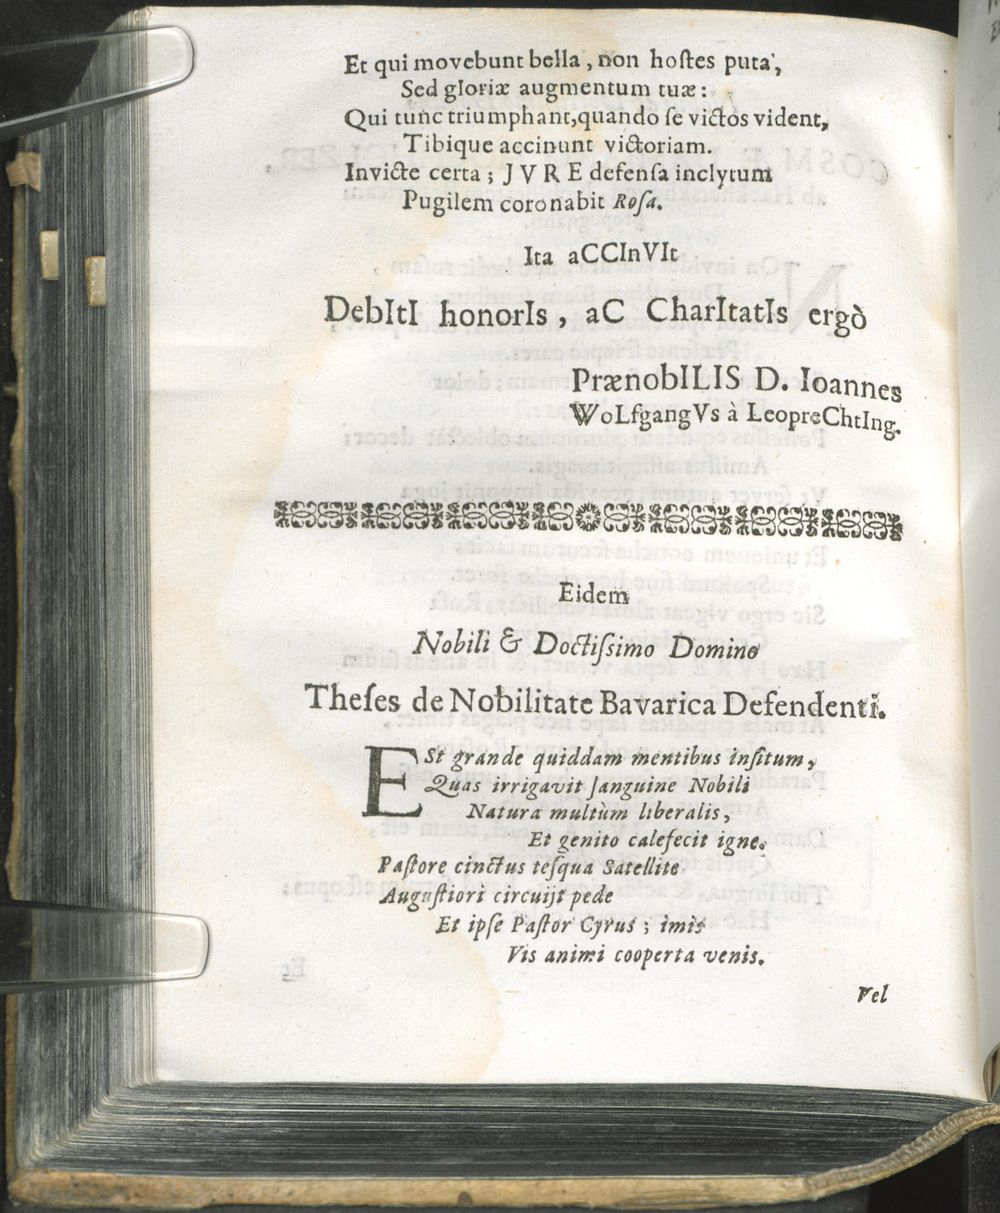 Et qui movebunt bella, non hoſtes puta,
Sed gloriæ augmentum tuæ:
Qui tunc triumphant, quando ſe victos vident,
Tibique accinunt victoriam.
Invicte certa; JVRE defenſa inclytum
Pugilem coronabit Roſa.
Ita aCCInVIt
DebItI honorIs, aC CharItatIs ergò
PrænobILIS D. Ioannes
WoLfgangVs à LeopreChtIng.
Eidem
Nobili & Doctiſsimo Domino
Theſes de Nobilitate Bavarica Defendenti.
ESt grande quiddam mentibus inſitum,
Quas irrigavit ſanguine Nobili
Natura multùm liberalis,
Et genito calefecit igne.
Paſtore cinctus teſqua Satellite
Auguſtiori circuijt pede
Et ipſe Paſtor Cyrus; imis
Vis animi cooperta venis.
Vel